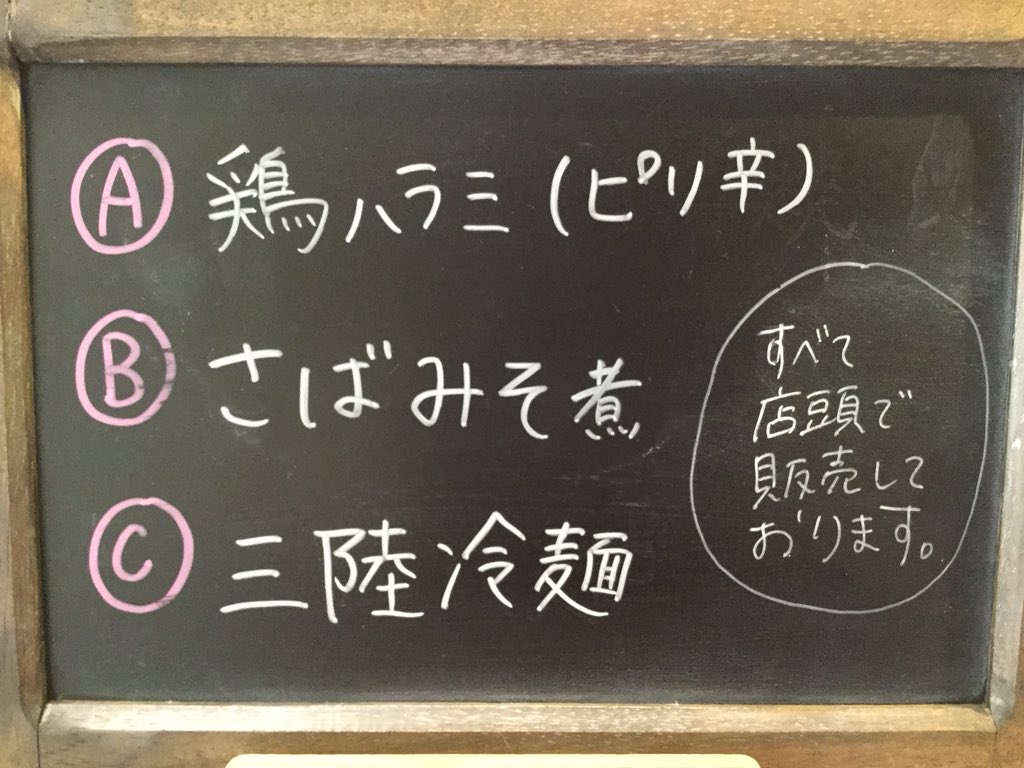 Ⓐ 鶏ハラミ(ピリ辛)
Ⓑ さばみそ煮
Ⓒ 三陸冷麺
すべて
店頭で
販売して
おります。